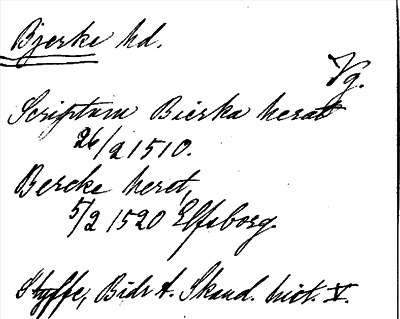 Bjerke hd.
Vg.
Scriptum Bierka herat
26/2 1510.
Bercke heret,
5/2 1520 Elfsborg.
Styffe, Bidr t. Skand. hist. V.